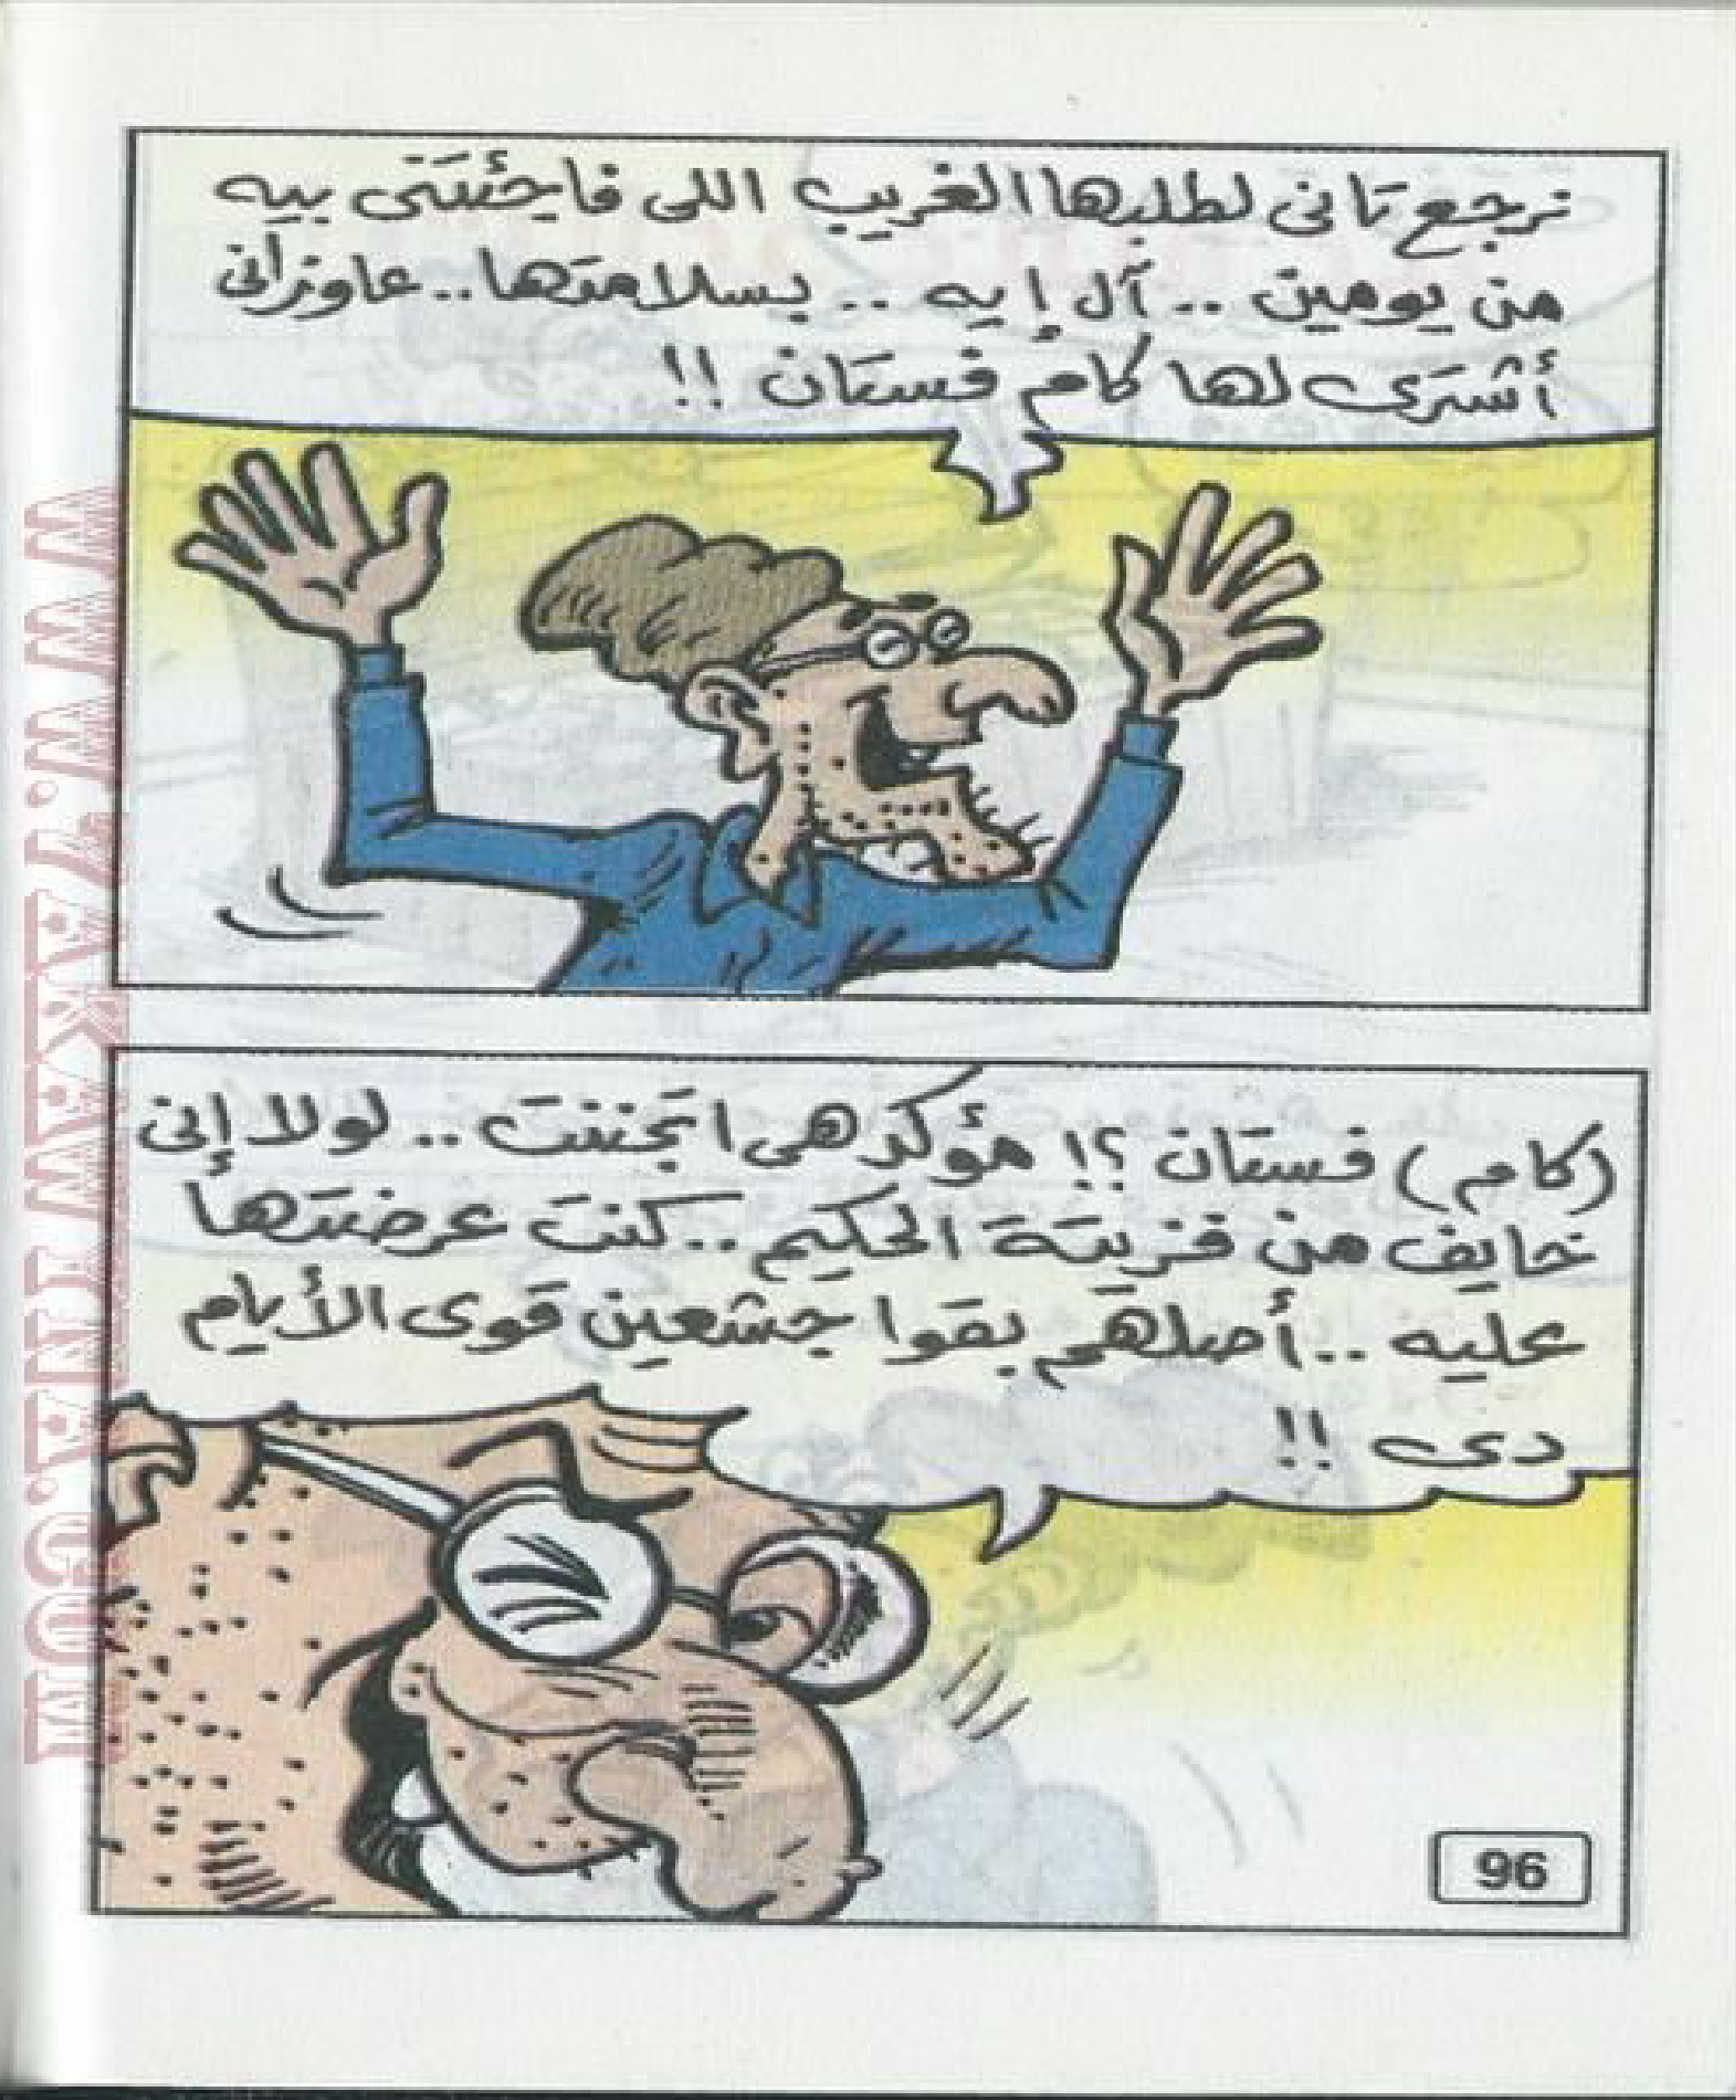 نرجع تانى لطلبها الغريب اللى فاجئتنى بيه
من يومين .. آل إيه .. بسلامتها .. عاوزانى
أشترى لها كام فستان !!
(كام) فستان ؟! مؤكد هى اتجننت .. لولا إنى
خايف من فزيتة الحكيم .. كنت عرضتها
عليه .. أصلهم بقوا جشعين قوى الأيام
دى !!
96
WWW.7AKAWINA.COM